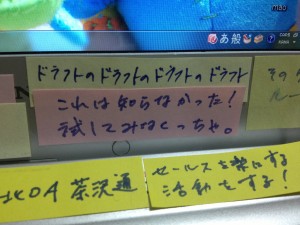 mao
あ 般
CAPS
ドラフトのドラフトのドラフトのドラフト
これは知らなかった!
試してみなくっちゃ。
その
ルー
北04 茶沢通
セールスを楽にする
活動をする!